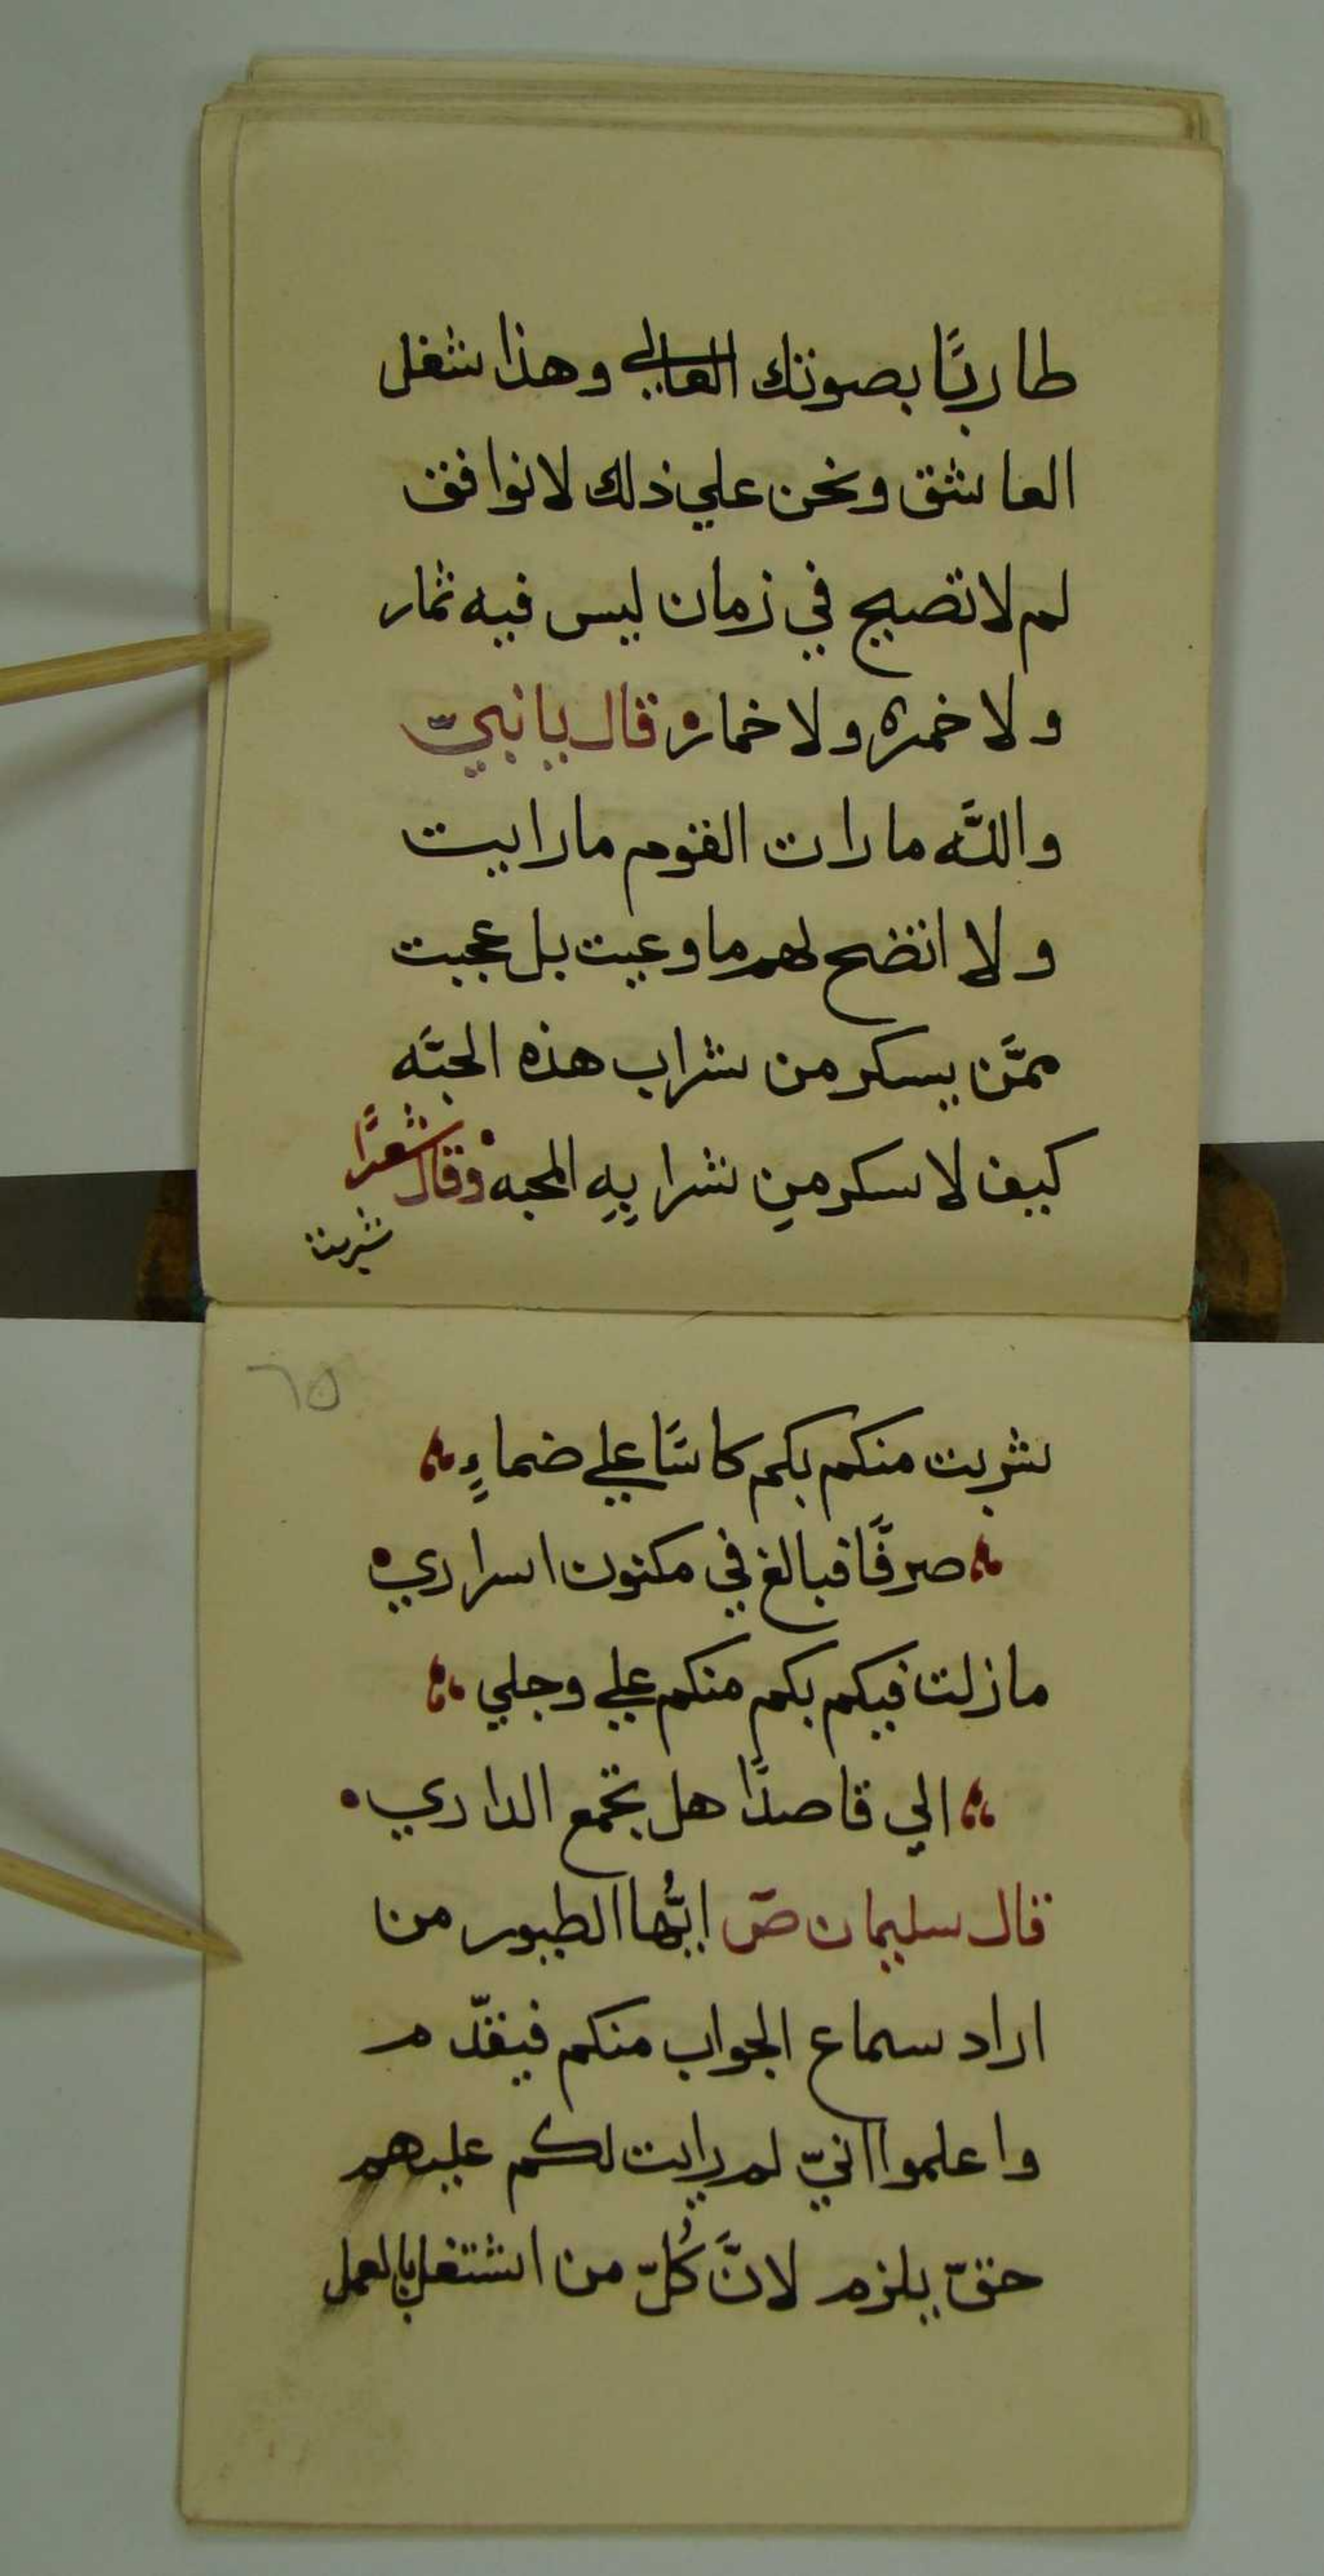 طاربًا بصوتك العالي وهذا شغل
العاشق ونحن علي ذلك لانوافق
لم لاتصيح في زمان ليس فيه ثمار
ولا خمره ولا خمار قال يا نبيّ
واللّه مارات القوم مارايت
ولا اتضح لهم ماوعيت بل عجبت
ممَّن يسكر من شراب هذه الحبَّه
كيف لاسكر من شرابِهِ المحبه وقال شعرًا
شربت
٦٥
شربت منكم بكم كاسًا علي ضماءٍ
صرفًا فبالغ في مكنون اسراري
مازلت فيكم بكم منكم علي وجلي
الي قاصدًا هل تجمع الداري
قال سليمان صٓ ايُّها الطيور من
اراد سماع الجواب منكم فيقدّم
واعلموا انيّ لم رايت لكم عليهم
حقّ يلزم لانَّ كُلّ من اشتغل بالعمل